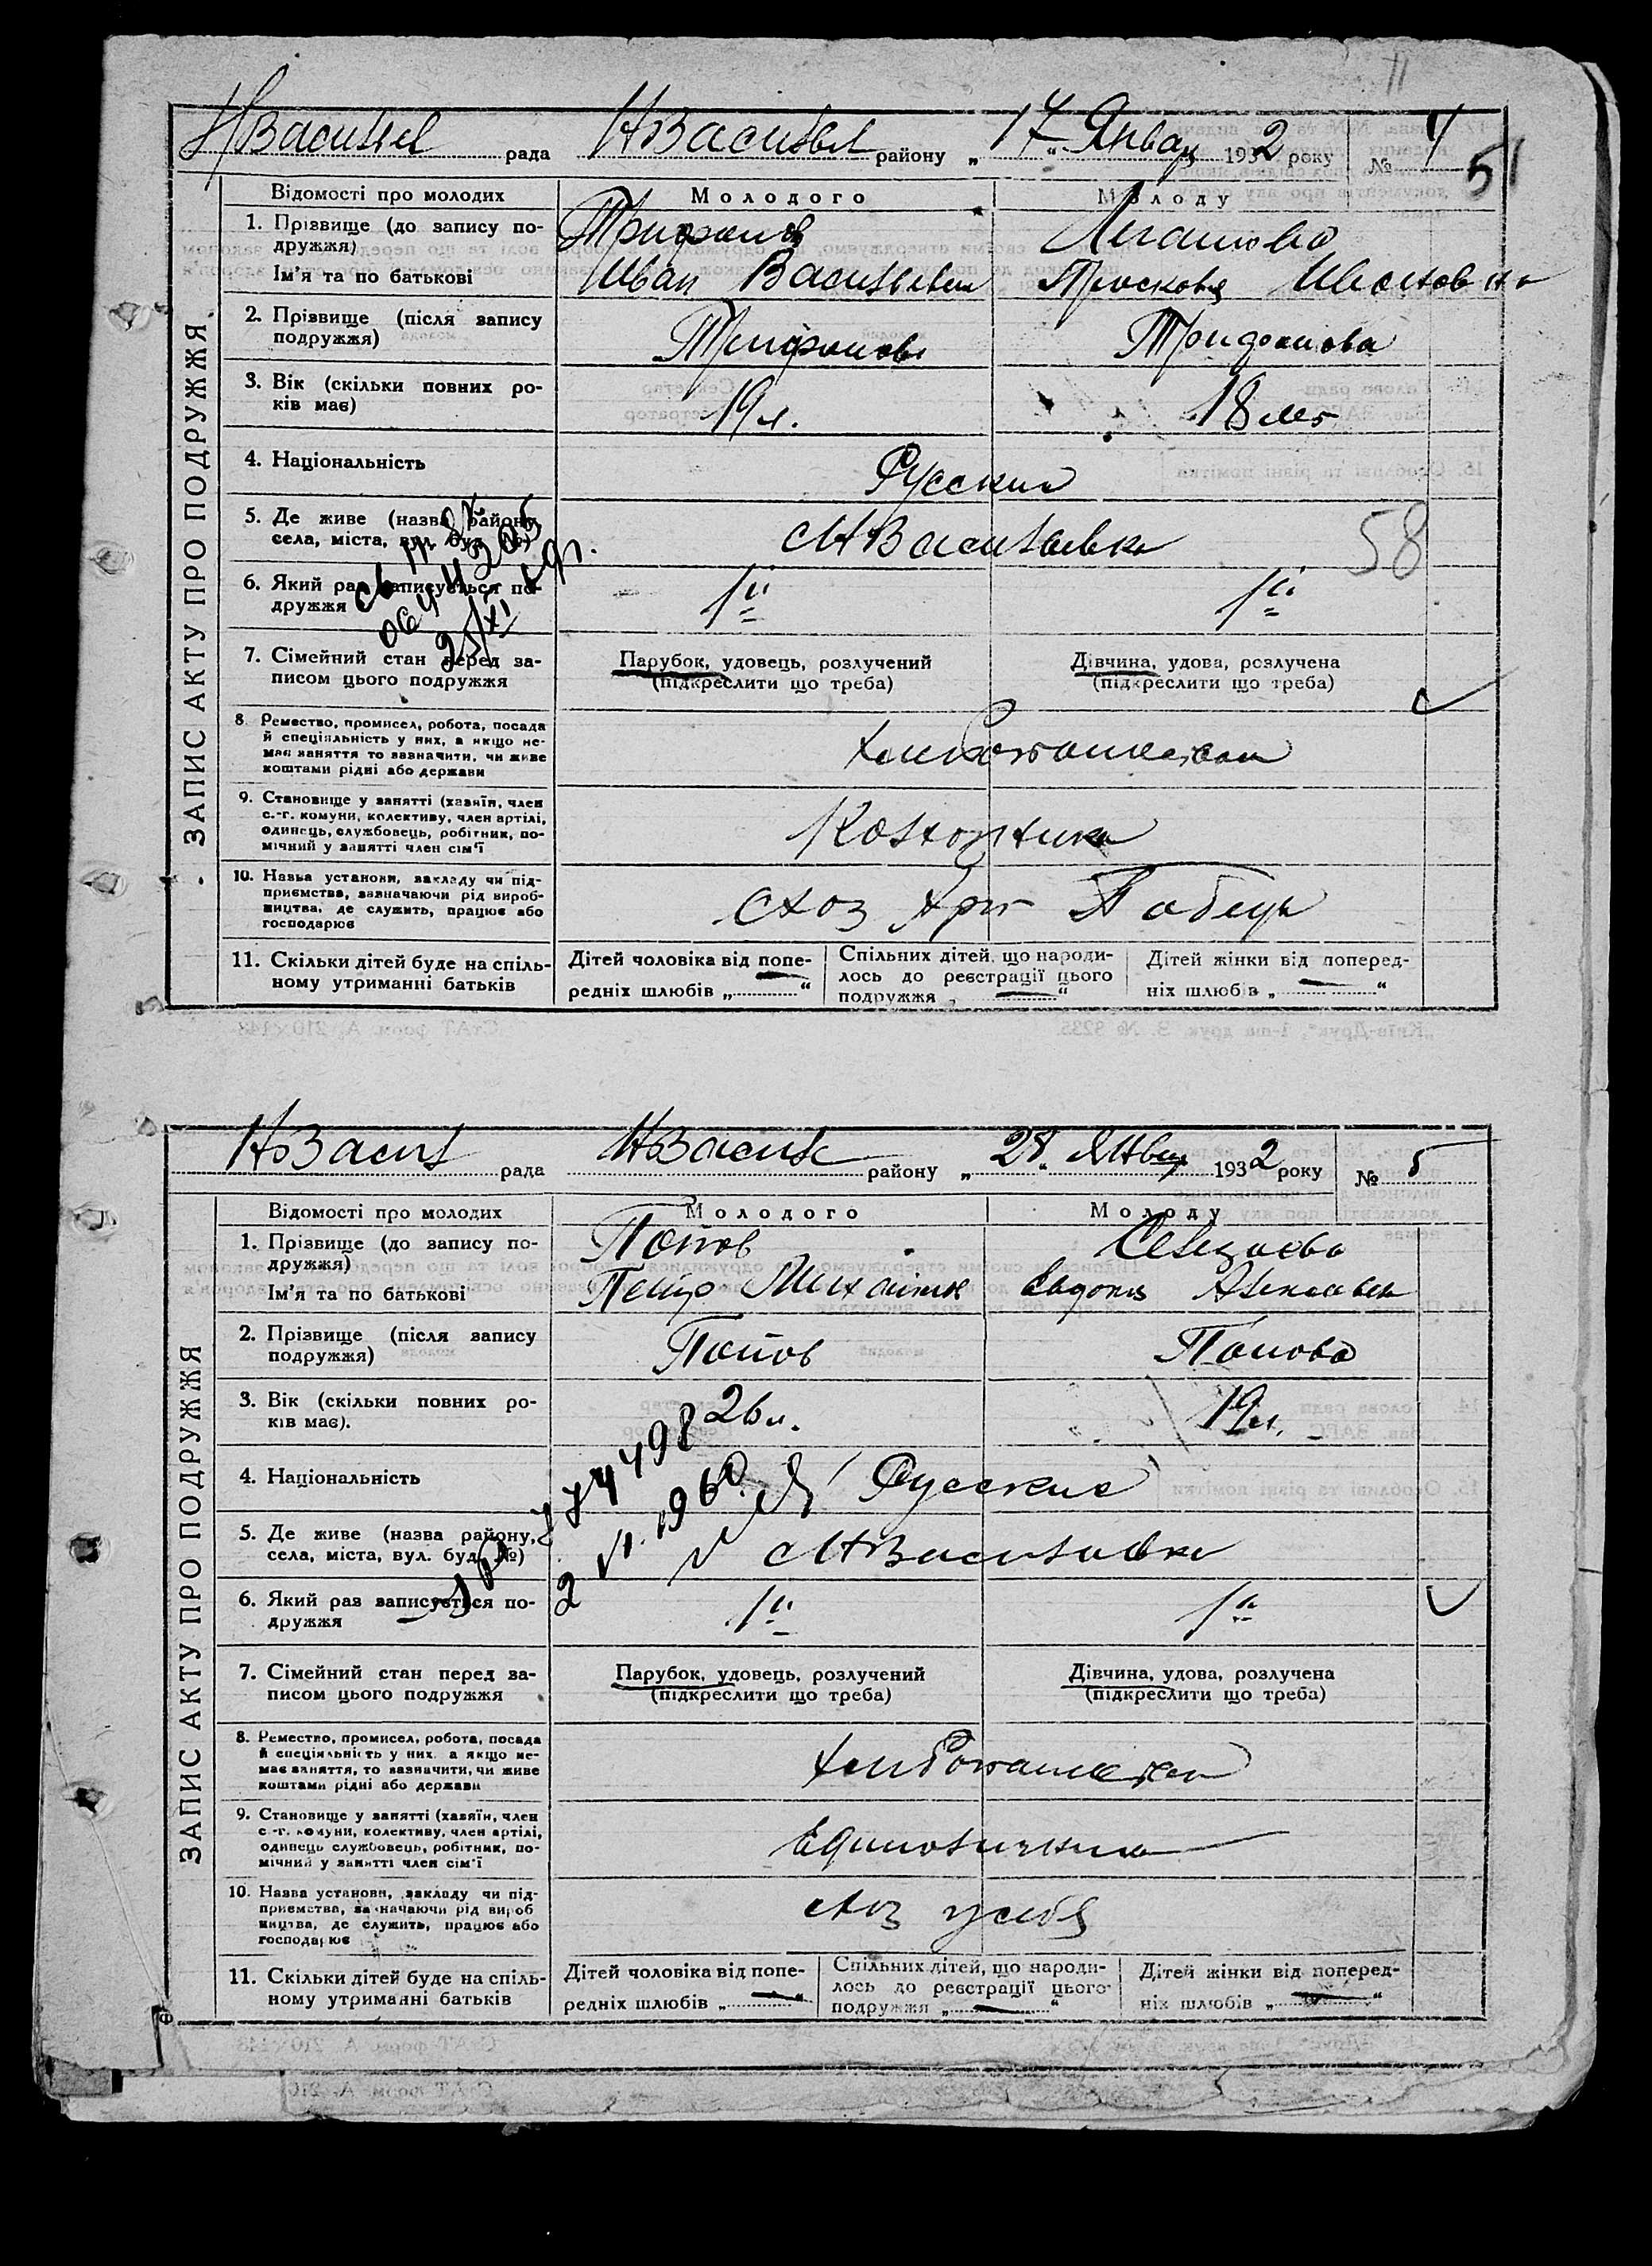 НВасильев рада НВасильев району „17“ Января 1932 року № 4
51
ЗАПИС АКТУ ПРО ПОДРУЖЖЯ
Відомості про молодих Молодого Молоду
1. Прізвище (до запису по-
дружжя)
Трифонов
Ім'я та по батькові Иван Васильевич Просковья Ивановна
2. Прізвище (після запису
подружжя)
Трифонов Трифонова
3. Вік (скільки повних ро-
ків має)
19 л. 18 лет
4. Національність Русский
5. Де живе (назва району,
села, міста, вул. буд. №)
с НВасильевка
58
6. Який раз записується по-
дружжя
1й 1й
7. Сімейний стан перед за-
писом цього подружжя
Парубок, удовець, розлучений
(підкреслити що треба)
Дівчина, удова, розлучена
(підкреслити що треба)
8. Ремество, промисел, робота, посада
й спеціяльність у них, а якщо не-
має заняття то зазначити, чи живе
коштами рідні або держави
хлебопашество
9. Становище у занятті (хазяїн, член
с.-г. комуни, колективу, член артілі,
одинець, службовець, робітник, по-
мічний у занятті член сім'ї
Колхозник
10. Назва установи, закладу чи під-
приємства, зазначаючи рід вироб-
ництва, де служить, працює або
господарює
схоз Арт Победа
11. Скільки дітей буде на спіль-
ному утриманні батьків
Дітей чоловіка від попе-
редніх шлюбів „—“
Спільних дітей, що народи-
лось до реєстрації цього
подружжя „—“
Дітей жінки від поперед-
ніх шлюбів „—“
НВасил рада НВасил району „28“ Января 1932 року № 5
ЗАПИС АКТУ ПРО ПОДРУЖЖЯ
Відомості про молодих Молодого Молоду
1. Прізвище (до запису по-
дружжя)
Попов
Ім'я та по батькові Петр Михайлов Евдокия
2. Прізвище (після запису
подружжя)
Попов Попова
3. Вік (скільки повних ро-
ків має).
26 л. 19 л.
774498
2 VI. 1960.
4. Національність Русские
5. Де живе (назва району,
села, міста, вул. буд. №)
с НВасильевка
6. Який раз записується по-
дружжя
1й 1й
7. Сімейний стан перед за-
писом цього подружжя
Парубок, удовець, розлучений
(підкреслити що треба)
Дівчина, удова, розлучена
(підкреслити що треба)
8. Ремество, промисел, робота, посада
й спеціяльність у них. а якщо не-
має заняття, то зазначити, чи живе
коштами рідні або держави
хлебопашество
9. Становище у занятті (хазяїн, член
с.-г. комуни, колективу, член артілі,
одинець службовець, робітник, по-
мічний у занятті член сім'ї
Единоличник
10. Назва установи, закладу чи під-
приємства, зазначаючи рід вироб
ництва, де служить, працює або
господарює
схоз у себя
11. Скільки дітей буде на спіль-
ному утриманні батьків
Дітей чоловіка від попе-
редніх шлюбів „—“
Спільних дітей, що народи-
лось до реєстрації цього
подружжя „—“
Дітей жінки від поперед-
ніх шлюбів „—“